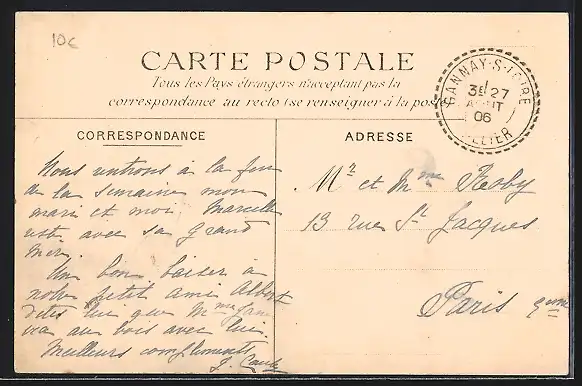 10c
CARTE POSTALE
Tous les Pays étrangers n'acceptant pas la
correspondance au recto (se renseigner à la poste
GANNAY-S-LOIRE
3E 27
AOUT
06
ALLIER
CORRESPONDANCE
ADRESSE
Nous rentrons à la fin
de la semaine mon
mari et moi Marcelle
reste avec sa grand
mère
Un bon baiser à
notre petit ami Albert
dites lui que Mme
ira au bois avec lui
Meilleurs compliments
J.
Mr et Mme Roby
13 rue St Jacques
Paris 5eme